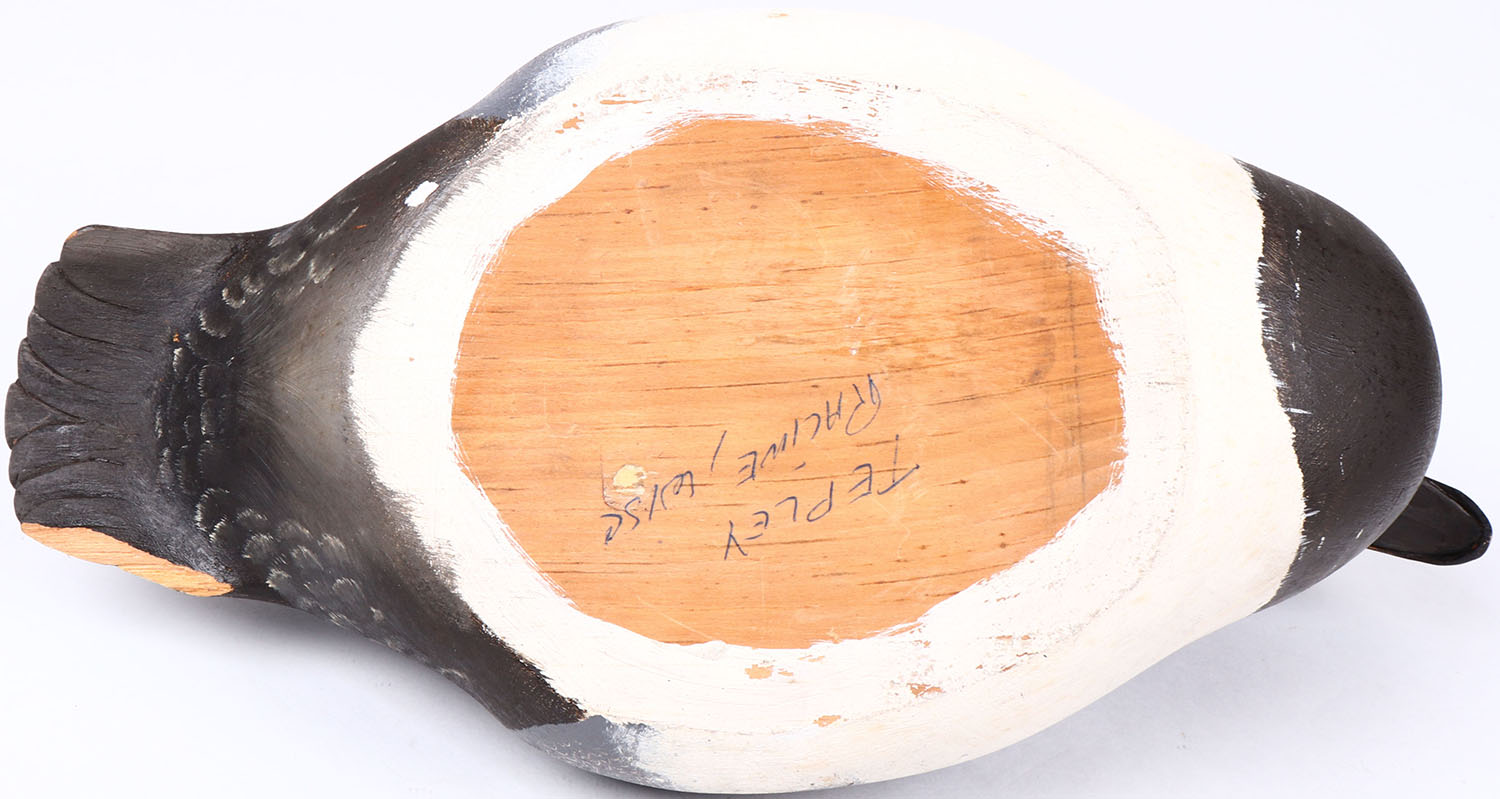 TEPLEY
RACINE, WISC